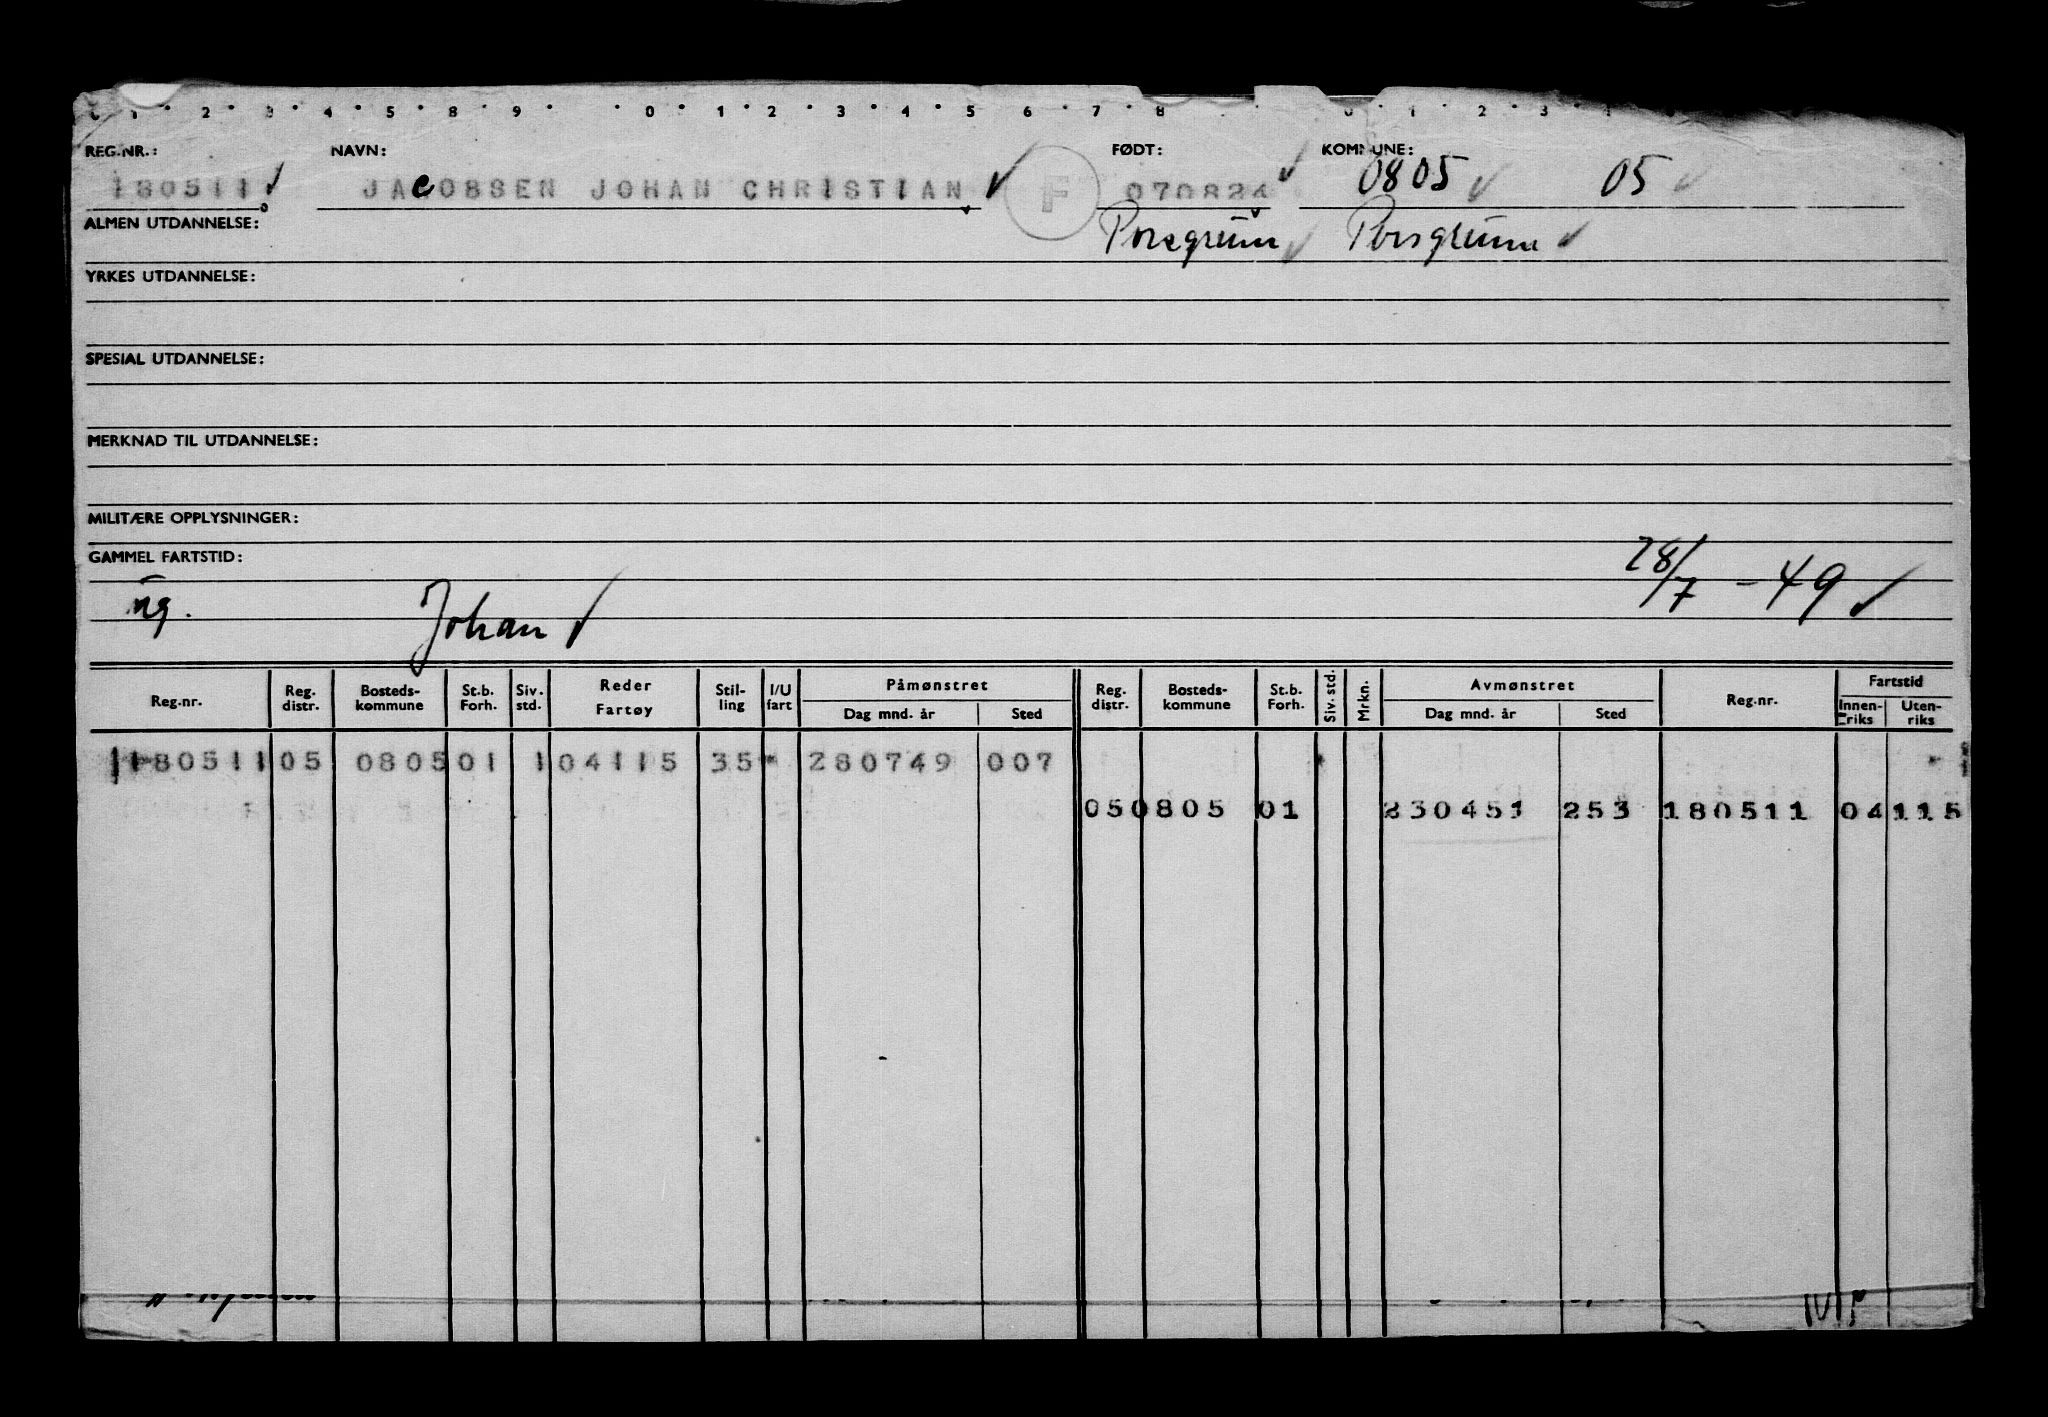 1 2 3 4 5 8 9 0 1 2 3 4 5 6 7 8 0 1 2 3
REG.NR.: NAVN: FØDT: KOMMUNE:
180511 JACOBSEN JOHAN CHRISTIAN F 070824 0805 05
ALMEN UTDANNELSE: Porsgrunn Porsgrunn
YRKES UTDANNELSE:
SPESIAL UTDANNELSE:
MERKNAD TIL UTDANNELSE:
MILITÆRE OPPLYSNINGER:
GAMMEL FARTSTID: 28/7 - 49
ug. Johan
Reg.nr. Reg. distr. Bosteds-kommune St.b. Forh. Siv. std. Reder Fartøy Stil-ling I/U fart Påmønstret Dag mnd. år Sted Reg. distr. Bosteds-kommune St.b. Forh. Siv. std. Mrkn. Avmønstret Dag mnd. år Sted Reg.nr. Fartstid Innen-riks Uten-riks
180511 05 0805 01 1 04115 35 280749 007
05 0805 01 230451 253 180511 04 115